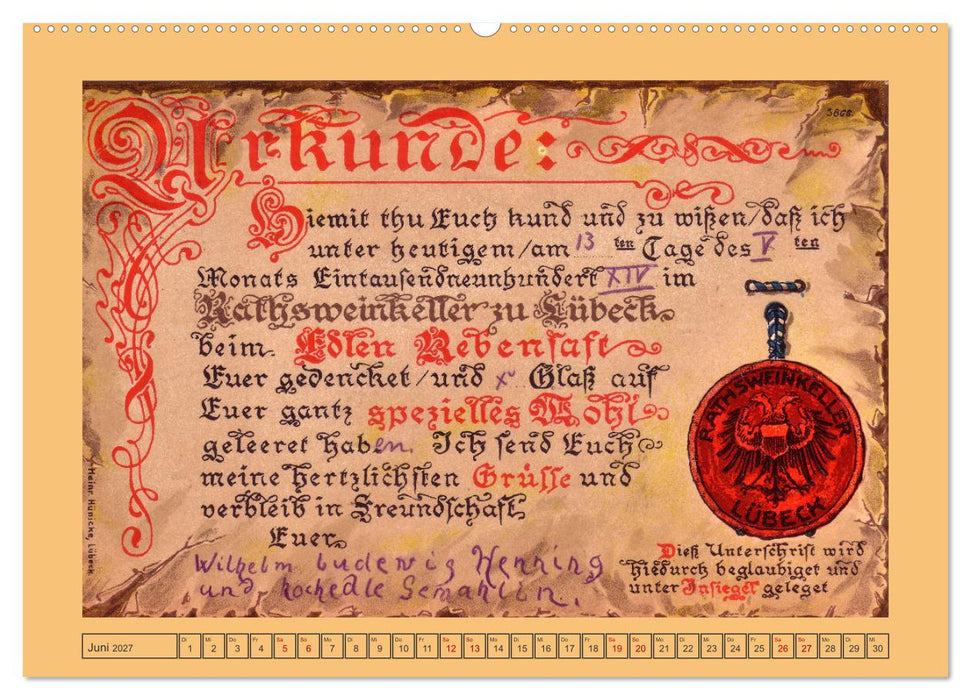 3868.
Urkunde:
Hiemit thu Euch kund und zu wißen/daß ich
unter heutigem/am 13 ten Tage des V ten
Monats Eintausendneunhundert XIV im
Rathsweinkeller zu Lübeck
beim Edlen Rebensaft
Euer gedencket/und x Glaß auf
Euer gantz spezielles Wohl
geleeret haben. Ich send Euch
meine hertzlichsten Grüsse und
verbleib in Freundschaft
Euer
Wilhelm Ludewig Henning
und hochedle Gemahlin.
RATHSWEINKELLER
LÜBECK
Dieß Unterschrift wird
hiedurch beglaubiget und
unter Insiegel geleget
Heinr. Hünicke, Lübeck.
Juni 2027
Di Mi Do Fr Sa So Mo Di Mi Do Fr Sa So Mo Di Mi Do Fr Sa So Mo Di Mi Do Fr Sa So Mo Di Mi
1 2 3 4 5 6 7 8 9 10 11 12 13 14 15 16 17 18 19 20 21 22 23 24 25 26 27 28 29 30